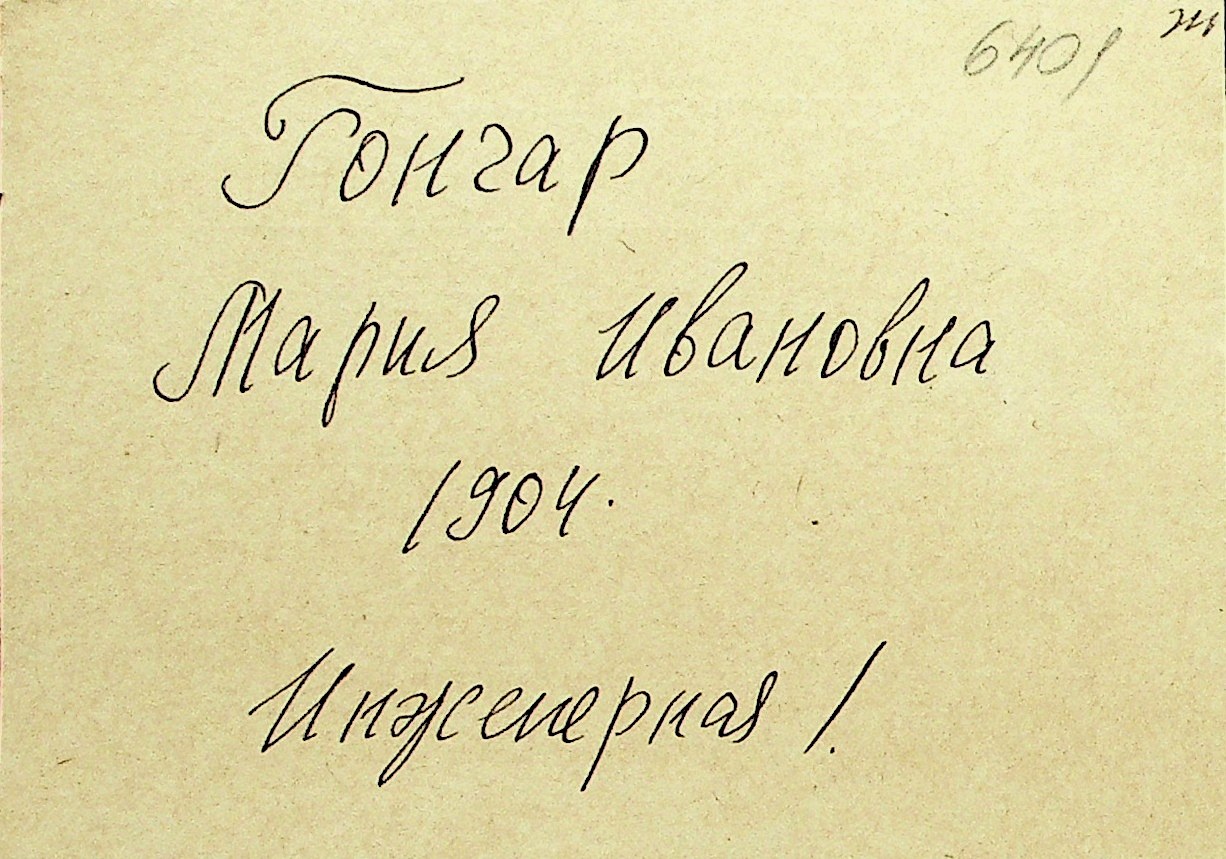 6401
Гончар
Мария Ивановна
1904.
Инженерная 1.